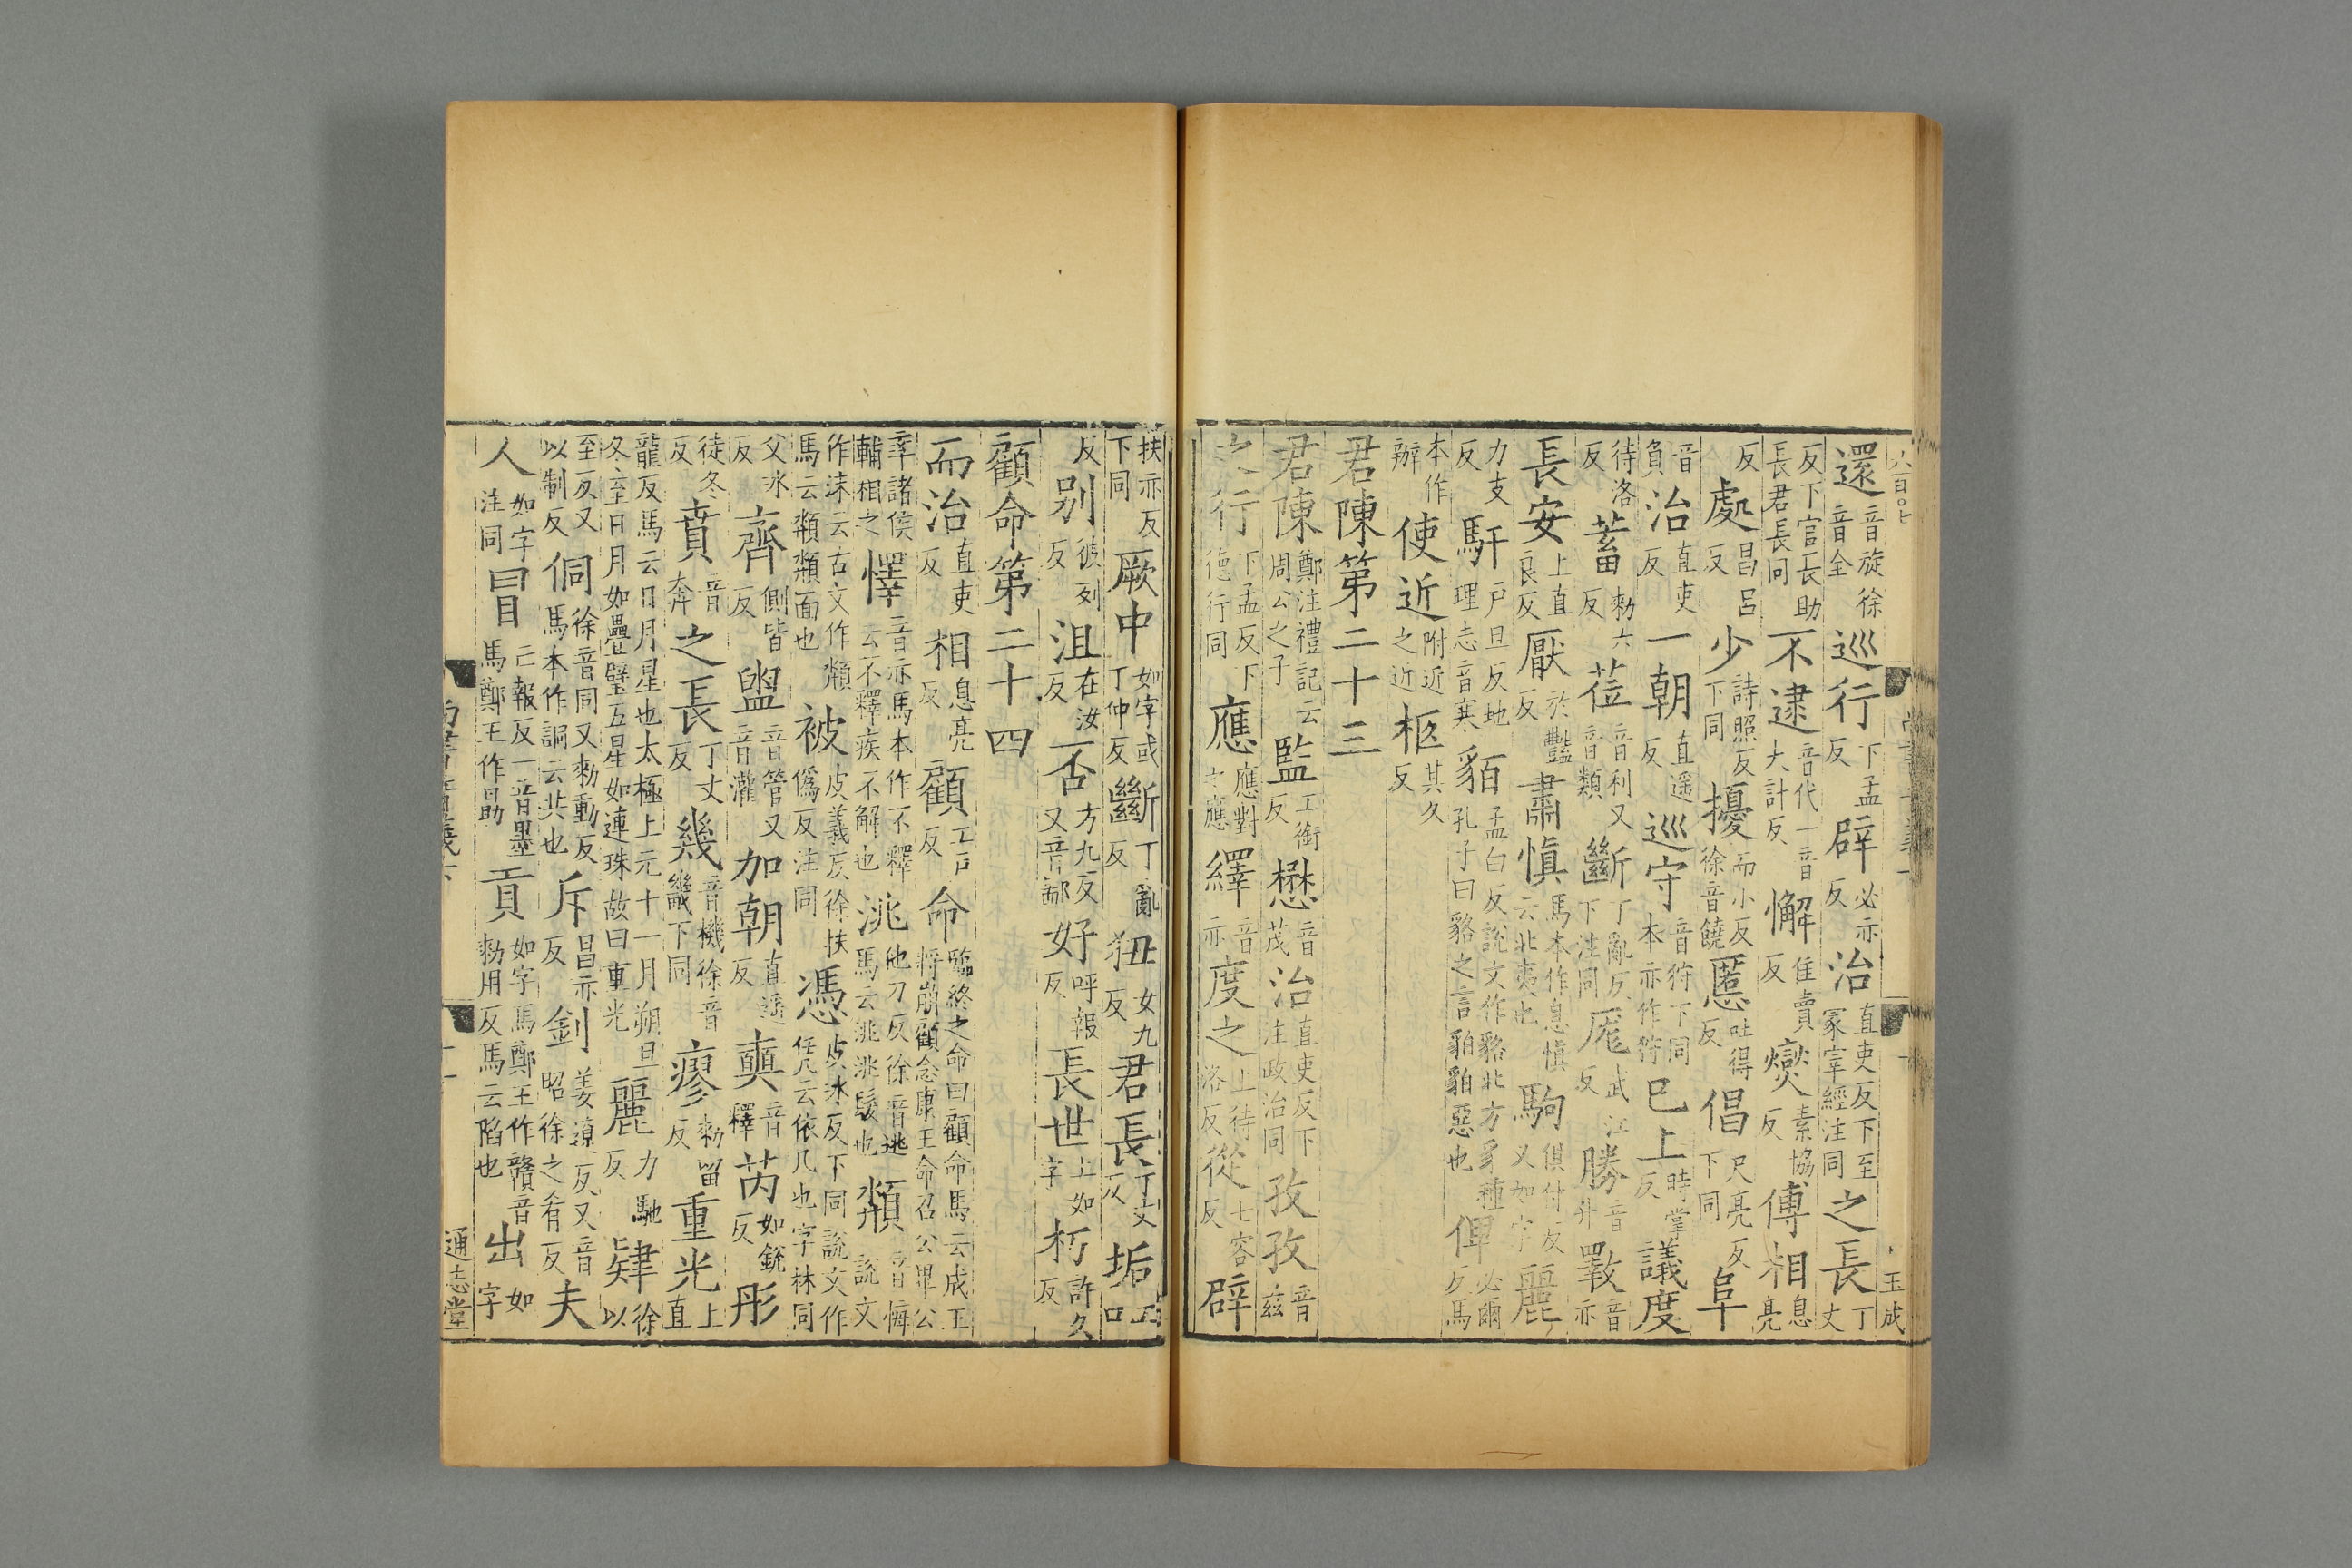 還音旋徐音全巡行下孟反辟必亦反治直吏反下至冢宰經注同之長丁丈
反下官長助長君長同不逮音代一音大計反懈佳賣反燮素協反傅相息亮
反處昌呂反少詩照反下同擾而小反徐音饒慝吐得反倡尺亮反下同阜
音負治直吏反一朝直遥反巡守音狩下同本亦作狩巳上時掌反議度
待洛反蓄勑六反莅音利又音類斷丁亂反下注同厖武江反勝音升斁音亦
長安上直良反厭於豔反肅慎馬本作息慎云北夷也駒俱付反又如字麗
力支反馯戶旦反地理志音寒貊孟白反說文作貉北方豸種孔子曰貉之言貊貊惡也俾必爾反馬
本作辦使近附近之近柩其久反
君陳第二十三
君陳鄭注禮記云周公之子監工銜反懋音茂治直吏反下注政治同孜孜音茲
之行下孟反下德行同應應對之應繹音亦度之上待洛反從七容反辟
扶亦反下同厥中如字或丁仲反斷丁亂反狃女九反君長丁丈反垢工口
反别彼列反沮在汝反否方九反又音鄙好呼報反長世上如字朽許久反
顧命第二十四
而治直吏反相息亮反顧工戶反命臨終之命曰顧命馬云成王將崩顧念康王命召公畢公
率諸侯輔相之懌音亦馬本作不釋云不釋疾不解也洮他刀反徐音逃馬云洮洮髮也頮音悔說文
作沬云古文作頮馬云頮頮面也被皮義反徐扶偽反注同憑皮冰反下同說文作凭云依几也字林同
父冰反齊側皆反盥音管又音灌加朝直遥反奭音釋芮如銳反彤
徒冬反賁音奔之長丁丈反幾音機徐音畿下同瘳勑留反重光上直
龍反馬云日月星也太極上元十一月朔旦冬至日月如疊璧五星如連珠故曰重光麗力馳反肄徐以
至反又以制反侗徐音同又勑動反馬本作詷云共也斥昌亦反釗姜遼反又音昭徐之肴反夫
人如字注同冒亡報反一音墨馬鄭王作勖貢如字馬鄭王作贛音勑用反馬云陷也出如字
通志堂